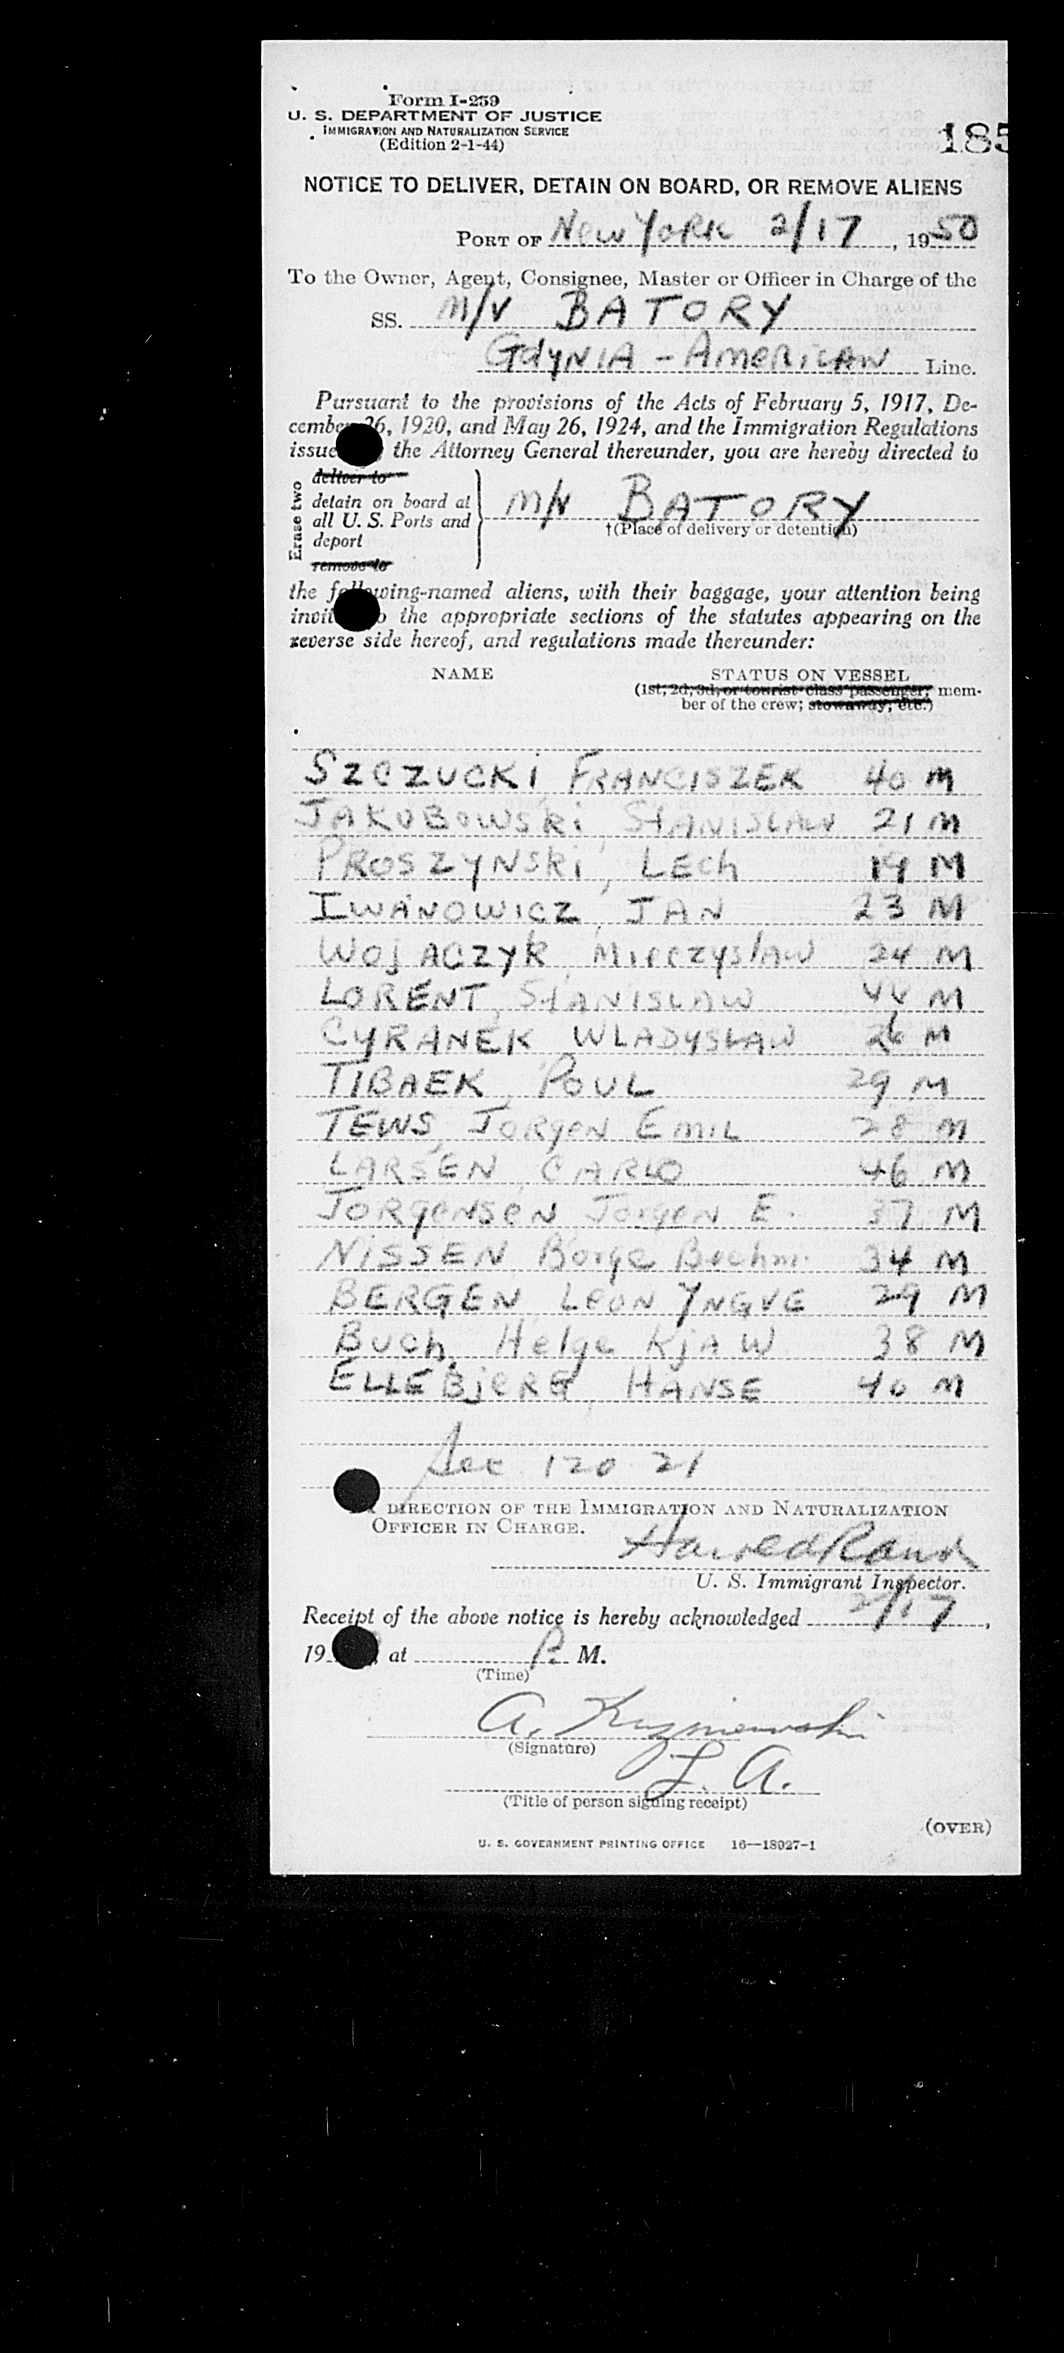 Form I-259
U. S. DEPARTMENT OF JUSTICE
IMMIGRATION AND NATURALIZATION SERVICE
(Edition 2-1-44)
185
NOTICE TO DELIVER, DETAIN ON BOARD, OR REMOVE ALIENS
PORT OF New York 2/17, 1950
To the Owner, Agent, Consignee, Master or Officer in Charge of the
SS. M/V BATORY
GdyNIA - AmeRicAN Line.
Pursuant to the provisions of the Acts of February 5, 1917, De-
cember 26, 1920, and May 26, 1924, and the Immigration Regulations
issue the Attorney General thereunder, you are hereby directed to
Erase two
deliver to
detain on board at
all U. S. Ports and
deport
remove to
M/V BATORY
†(Place of delivery or detention)
the following-named aliens, with their baggage, your attention being
invit to the appropriate sections of the statutes appearing on the
reverse side hereof, and regulations made thereunder:
NAME STATUS ON VESSEL
(1st, 2d, 3d, or tourist class passenger; mem-
ber of the crew; stowaway, etc.)
SZCZUCKi FRANCISZEK 40 M
JAKUBOWSKi, STANISLAW 21 M
PROSZYNSKi, LECH 19 M
IWANOWICZ, JAN 23 M
WOJACZYK, Mieczyslaw 24 M
LORENT, STANISLAW 44 M
CYRANEK WLADYSLAW 26 M
TIBAEK, POUL 29 M
TEWS, JORgeN EMIL 28 M
LARSEN, CARLO 46 M
JORgeNSeN Jorgen E. 37 M
NiSSEN Borge Boehm. 34 M
BERGEN, LeoN YNGVE 29 M
Buch, Helge KjAW 38 M
ELLEBjeRG, HANSE 40 M
Sec 120 21
DIRECTION OF THE IMMIGRATION AND NATURALIZATION
OFFICER IN CHARGE.
U. S. Immigrant Inspector.
Receipt of the above notice is hereby acknowledged 2/17,
19 , at P. M.
(Time)
(Signature)
L. A.
(Title of person signing receipt)
(OVER)
U. S. GOVERNMENT PRINTING OFFICE 16—18927-1